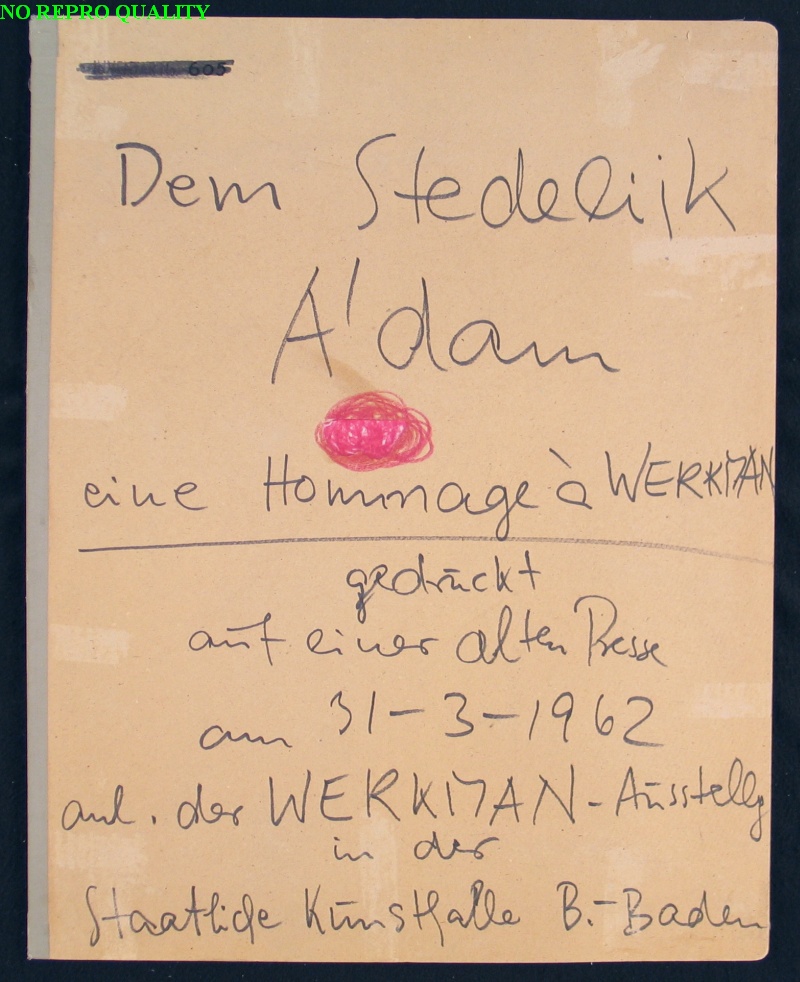 NO REPRO QUALITY
605
Dem Stedelijk
A'dam
eine Hommage à WERKMAN
gedruckt
auf einer alten Presse
am 31-3-1962
anl. der WERKMAN-Ausstellg
in der
Staatliche Kunsthalle B.-Baden